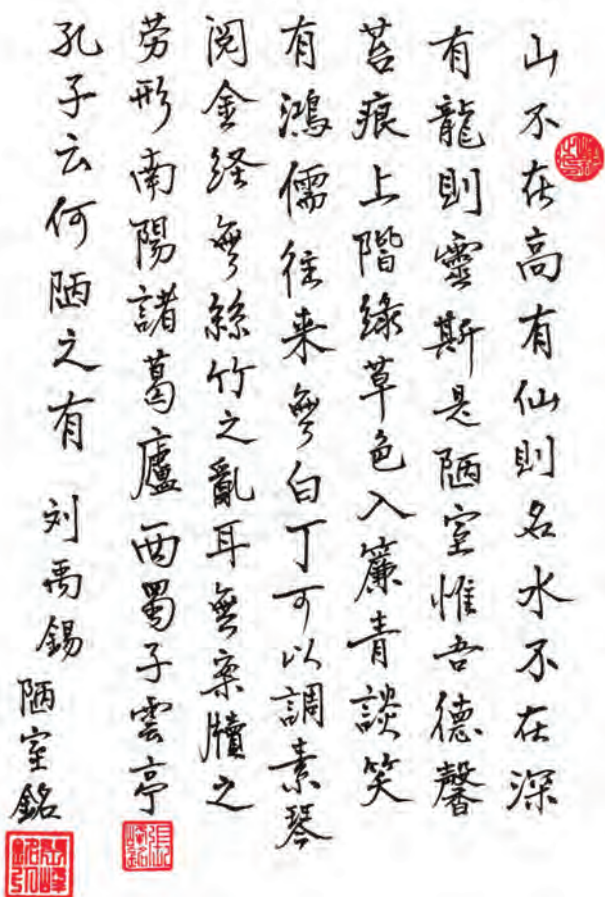 山不在高有仙則名水不在深
有龍則靈斯是陋室惟吾德馨
苔痕上階綠草色入簾青談笑
有鴻儒往来無白丁可以調素琴
閱金経無絲竹之亂耳無案牘之
劳形南陽諸葛廬西蜀子雲亭
孔子云何陋之有 刘禹錫
陋室銘